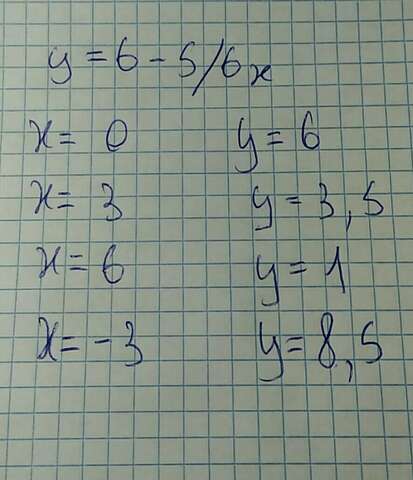 y = 6 - 5/6x
x = 0 y = 6
x = 3 y = 3,5
x = 6 y = 1
x = -3 y = 8,5